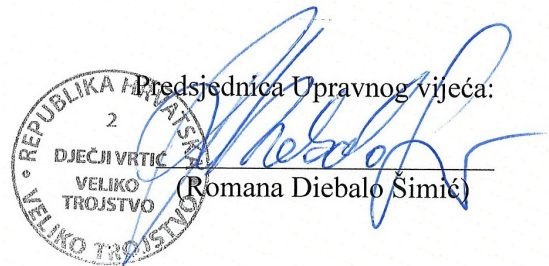 Predsjednica Upravnog vijeća:
(Romana Diebalo Šimić)
REPUBLIKA HRVATSKA
2
DJEČJI VRTIĆ
VELIKO
TROJSTVO
VELIKO TROJSTVO